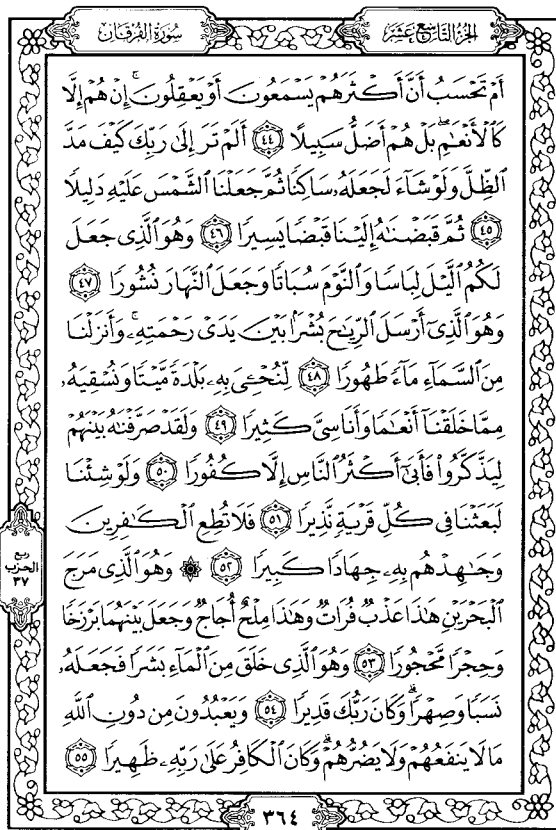 الجزء التاسع عشر
سورة الفرقان
أَمْ تَحْسَبُ أَنَّ أَكْثَرَهُمْ يَسْمَعُونَ أَوْ يَعْقِلُونَ ۚ إِنْ هُمْ إِلَّا
كَالْأَنْعَٰمِ ۖ بَلْ هُمْ أَضَلُّ سَبِيلًا ﴿٤٤﴾ أَلَمْ تَرَ إِلَىٰ رَبِّكَ كَيْفَ مَدَّ
الظِّلَّ وَلَوْ شَآءَ لَجَعَلَهُۥ سَاكِنًا ثُمَّ جَعَلْنَا الشَّمْسَ عَلَيْهِ دَلِيلًا
﴿٤٥﴾ ثُمَّ قَبَضْنَٰهُ إِلَيْنَا قَبْضًا يَسِيرًا ﴿٤٦﴾ وَهُوَ الَّذِى جَعَلَ
لَكُمُ الَّيْلَ لِبَاسًا وَالنَّوْمَ سُبَاتًا وَجَعَلَ النَّهَارَ نُشُورًا ﴿٤٧﴾
وَهُوَ الَّذِىٓ أَرْسَلَ الرِّيَٰحَ بُشْرًۢا بَيْنَ يَدَىْ رَحْمَتِهِۦ ۚ وَأَنزَلْنَا
مِنَ السَّمَآءِ مَآءً طَهُورًا ﴿٤٨﴾ لِّنُحْـِۧىَ بِهِۦ بَلْدَةً مَّيْتًا وَنُسْقِيَهُۥ
مِمَّا خَلَقْنَآ أَنْعَٰمًا وَأَنَاسِىَّ كَثِيرًا ﴿٤٩﴾ وَلَقَدْ صَرَّفْنَٰهُ بَيْنَهُمْ
لِيَذَّكَّرُوا۟ فَأَبَىٰٓ أَكْثَرُ النَّاسِ إِلَّا كُفُورًا ﴿٥٠﴾ وَلَوْ شِئْنَا
لَبَعَثْنَا فِى كُلِّ قَرْيَةٍ نَّذِيرًا ﴿٥١﴾ فَلَا تُطِعِ الْكَٰفِرِينَ
وَجَٰهِدْهُم بِهِۦ جِهَادًا كَبِيرًا ﴿٥٢﴾ ۞ وَهُوَ الَّذِى مَرَجَ
الْبَحْرَيْنِ هَٰذَا عَذْبٌ فُرَاتٌ وَهَٰذَا مِلْحٌ أُجَاجٌ وَجَعَلَ بَيْنَهُمَا بَرْزَخًا
وَحِجْرًا مَّحْجُورًا ﴿٥٣﴾ وَهُوَ الَّذِى خَلَقَ مِنَ الْمَآءِ بَشَرًا فَجَعَلَهُۥ
نَسَبًا وَصِهْرًا ۗ وَكَانَ رَبُّكَ قَدِيرًا ﴿٥٤﴾ وَيَعْبُدُونَ مِن دُونِ اللَّهِ
مَا لَا يَنفَعُهُمْ وَلَا يَضُرُّهُمْ ۗ وَكَانَ الْكَافِرُ عَلَىٰ رَبِّهِۦ ظَهِيرًا ﴿٥٥﴾
ربع
الحزب
٣٧
٣٦٤